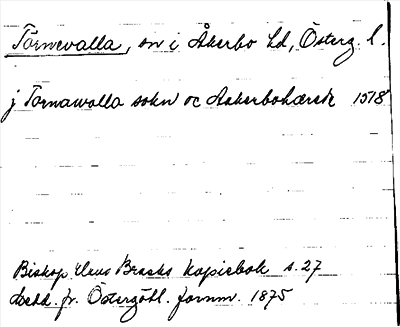 Törnevalla, sn i Åkerbo hd, Österg. l.
j Tornawalla sokn oc Aakerbohærsk 1518
Biskop Hans Brasks Kopiebok s. 27
Medd. fr. Östergötl. fornm. 1875